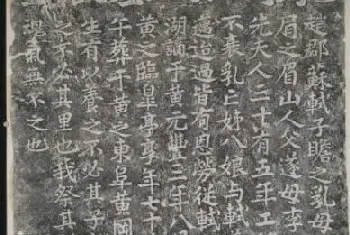 趙郡蘇軾子瞻之乳母
眉之眉山人父遂母李
先夫人三十有五年工
不衰乳亡姊八娘與軾
邁迨過皆有恩勞從軾
湖謫于黃元豐三年八
黃之臨皋亭享年七十
午葬于黃之東阜黃岡
生有以養之不必其子
之不必其里也我祭其
魂氣無不之也